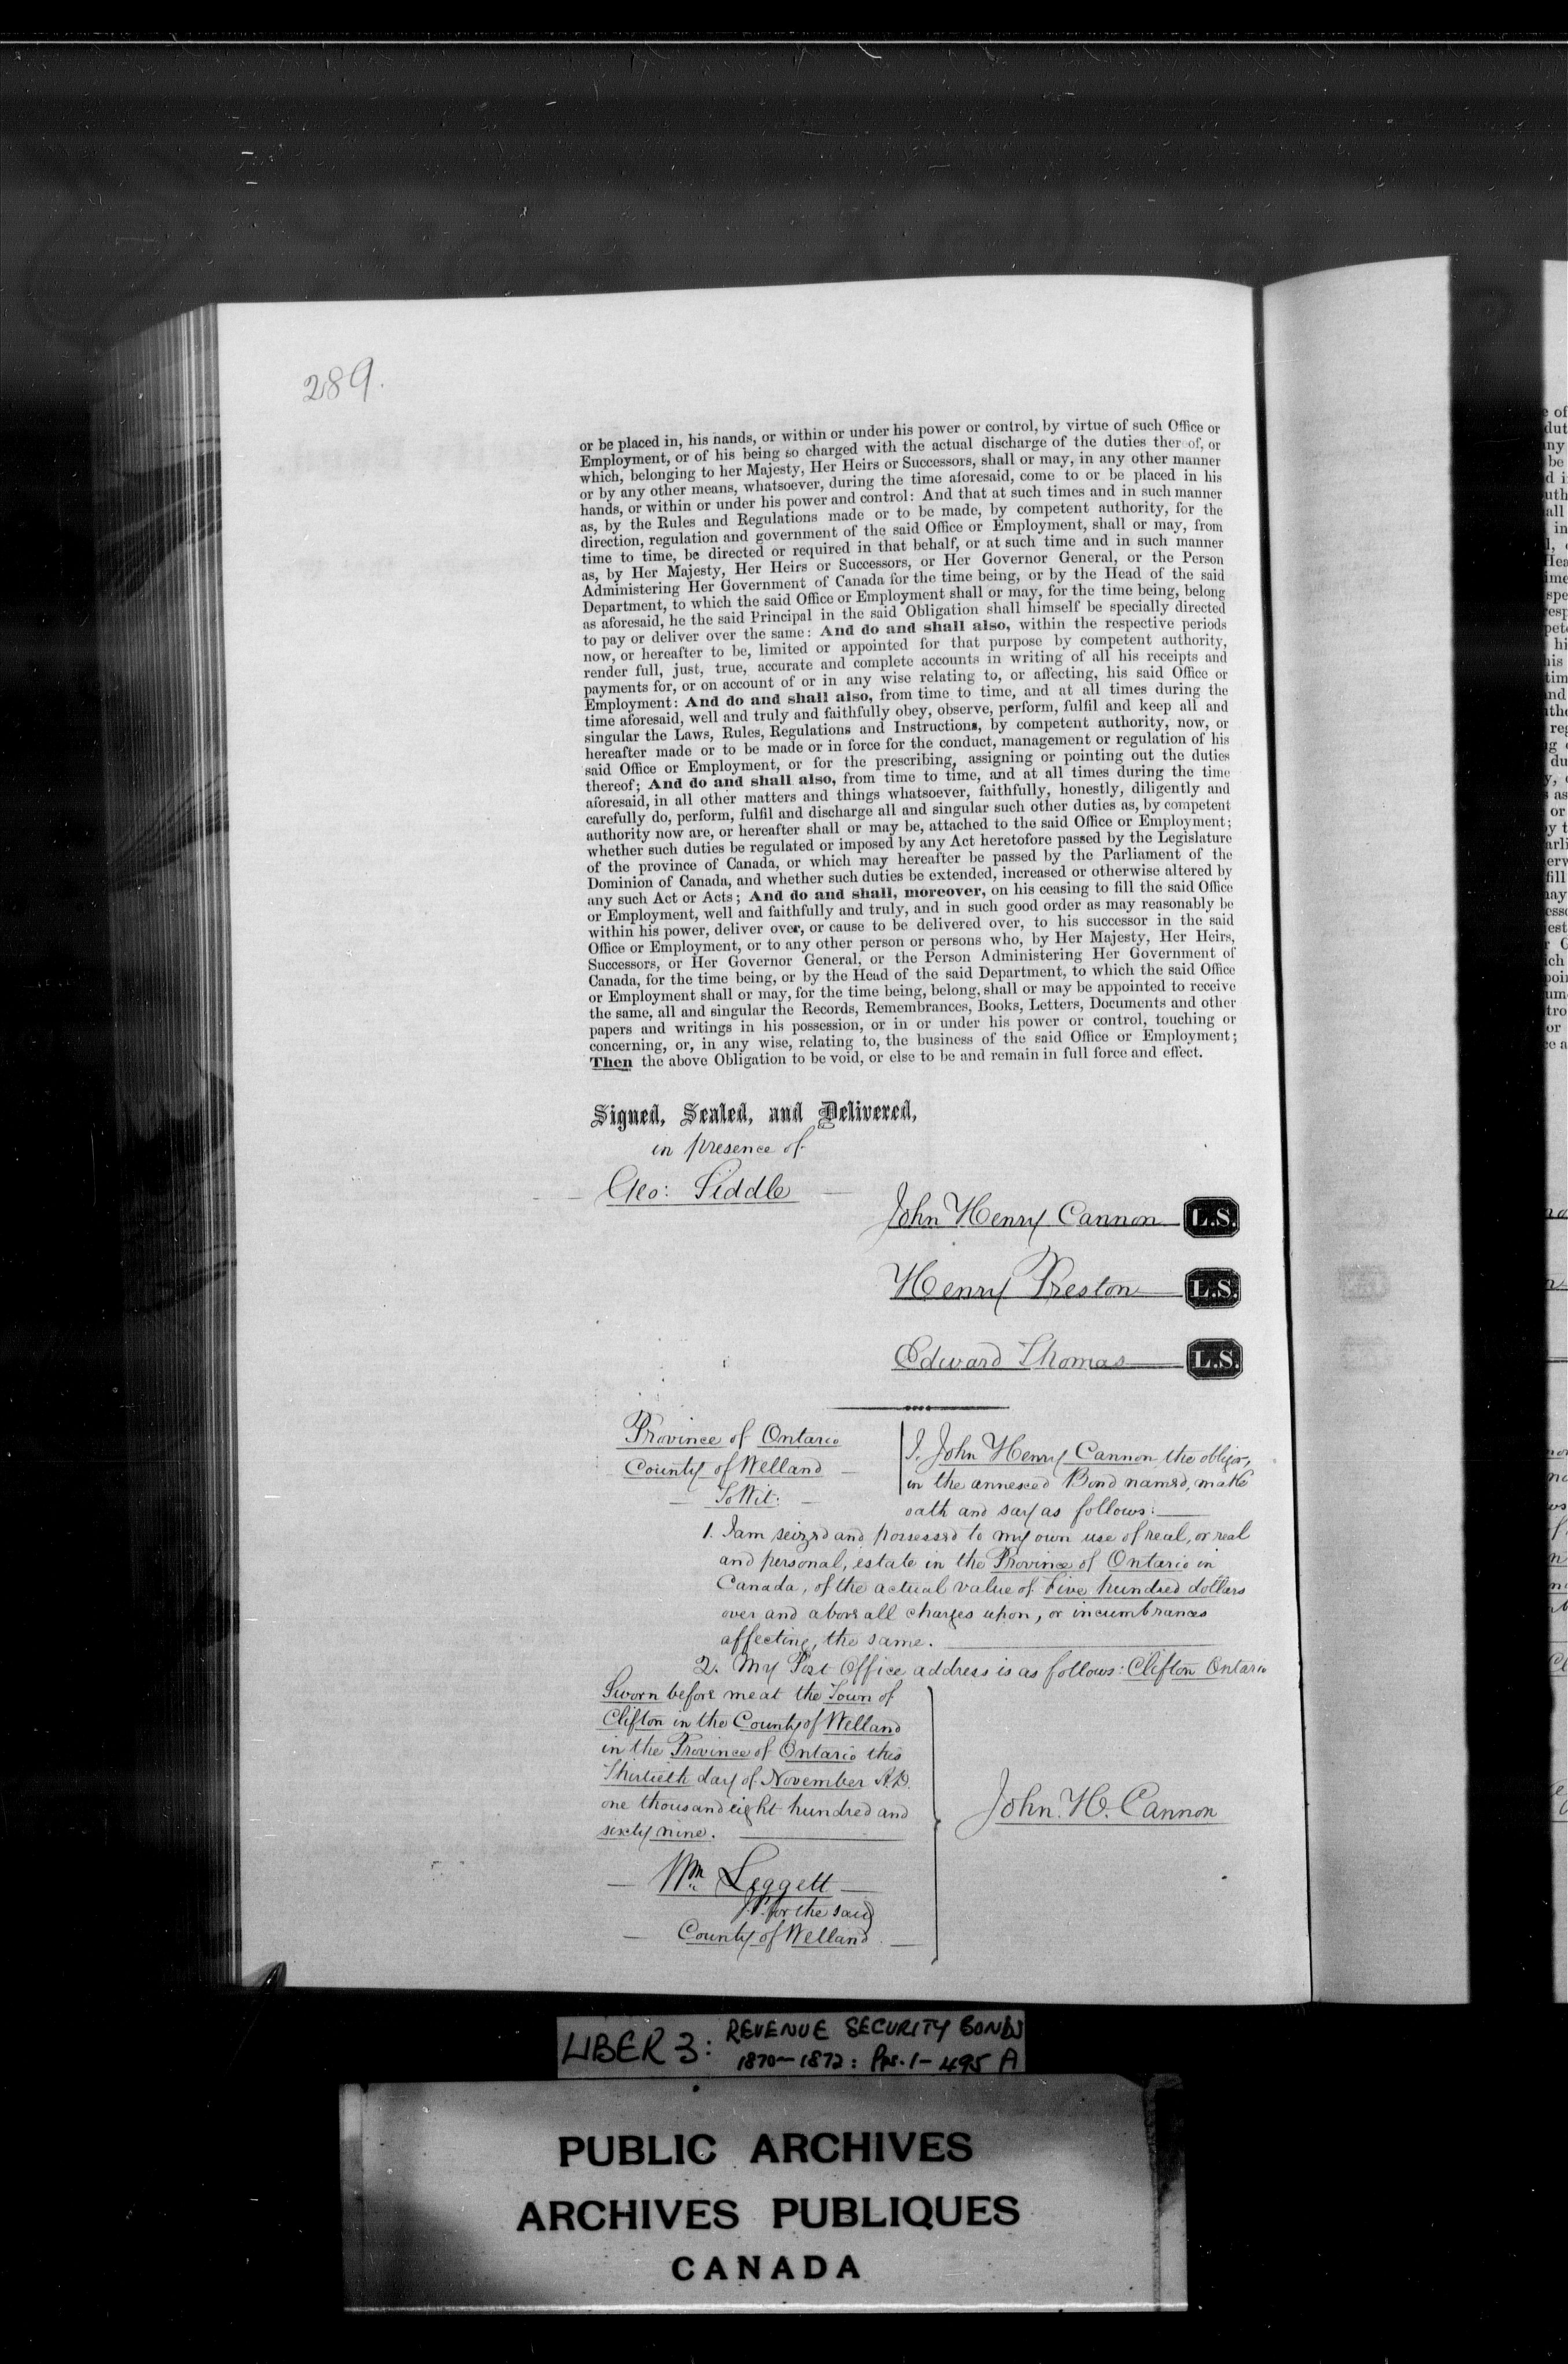 289.
or be placed in, his hands, or within or under his power or control, by virtue of such Office or
Employment, or of his being so charged with the actual discharge of the duties ther of, or
which, belonging to her Majesty, Her Heirs or Successors, shall or may, in any other manner
or by any other means, whatsoever, during the time aforesaid, come to or be placed in his
hands, or within or under his power and control: And that at such times and in such manner
as, by the Rules and Regulations made or to be made, by competent authority, for the
direction, regulation and government of the said Office or Employment, shall or may, from
time to time, be directed or required in that behalf, or at such time and in such manner
as, by Her Majesty, Her Heirs or Successors, or Her Governor General, or the Person
Administering Her Government of Canada for the time being, or by the Head of the said
Department, to which the said Office or Employment shall or may, for the time being, belong
as aforesaid, he the said Principal in the said Obligation shall himself be specially directed
to pay or deliver over the same: And do and shall also, within the respective periods
now, or hereafter to be, limited or appointed for that purpose by competent authority,
render full, just, true, accurate and complete accounts in writing of all his receipts and
payments for, or on account of or in any wise relating to, or affecting, his said Office or
Employment: And do and shall also, from time to time, and at all times during the
time aforesaid, well and truly and faithfully obey, observe, perform, fulfil and keep all and
singular the Laws, Rules, Regulations and Instructions, by competent authority, now, or
hereafter made or to be made or in force for the conduct, management or regulation of his
said Office or Employment, or for the prescribing, assigning or pointing out the duties
thereof; And do and shall also, from time to time, and at all times during the time
aforesaid, in all other matters and things whatsoever, faithfully, honestly, diligently and
carefully do, perform, fulfil and discharge all and singular such other duties as, by competent
authority now are, or hereafter shall or may be, attached to the said Office or Employment;
whether such duties be regulated or imposed by any Act heretofore passed by the Legislature
of the province of Canada, or which may hereafter be passed by the Parliament of the
Dominion of Canada, and whether such duties be extended, increased or otherwise altered by
any such Act or Acts; And do and shall, moreover, on his ceasing to fill the said Office
or Employment, well and faithfully and truly, and in such good order as may reasonably be
within his power, deliver over, or cause to be delivered over, to his successor in the said
Office or Employment, or to any other person or persons who, by Her Majesty, Her Heirs,
Successors, or Her Governor General, or the Person Administering Her Government of
Canada, for the time being, or by the Head of the said Department, to which the said Office
or Employment shall or may, for the time being, belong, shall or may be appointed to receive
the same, all and singular the Records, Remembrances, Books, Letters, Documents and other
papers and writings in his possession, or in or under his power or control, touching or
concerning, or, in any wise, relating to, the business of the said Office or Employment;
Then the above Obligation to be void, or else to be and remain in full force and effect.
Signed, Sealed, and Delivered,
in presence of
Geo: Siddle
John Henry Cannon L.S.
Henry Preston L.S.
Edward Thomas L.S.
Province of Ontario
County of Welland
To Wit:
I, John Henry Cannon the obligor,
in the annexed Bond named, make
oath and say as follows:
1. I am seized and possessed to my own use of real, or real
and personal, estate in the Province of Ontario in
Canada, of the actual value of Five hundred dollars
over and above all charges upon, or incumbrances
affecting, the same.
2. My Post Office address is as follows: Clifton Ontario
Sworn before me at the Town of
Clifton in the County of Welland
in the Province of Ontario this
Thirtieth day of November A.D.
one thousand eight hundred and
sixty nine.
John. H. Cannon
Wm Leggett
J.P. for the said
County of Welland
LIBER 3: REVENUE SECURITY BONDS
1870-1872: Pps. 1-495 A
PUBLIC ARCHIVES
ARCHIVES PUBLIQUES
CANADA